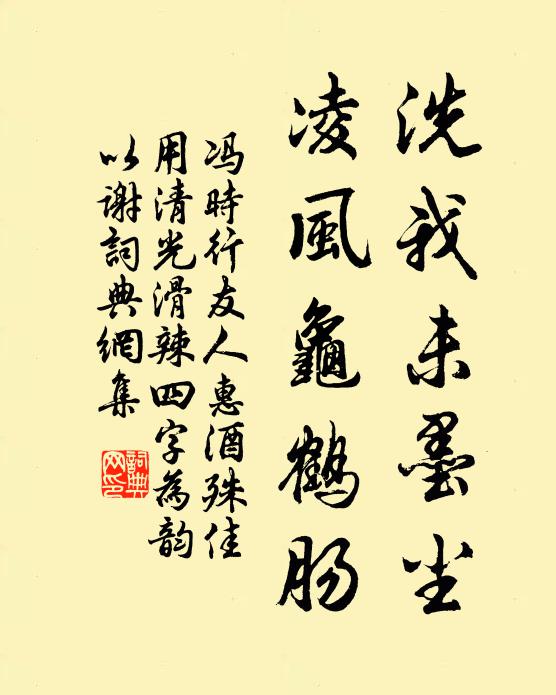 洗我未墨尘
凌風龜鶴肠
冯時行友人惠酒殊佳
用清光滑辣四字為韵
以谢詞典網集
詞典网印